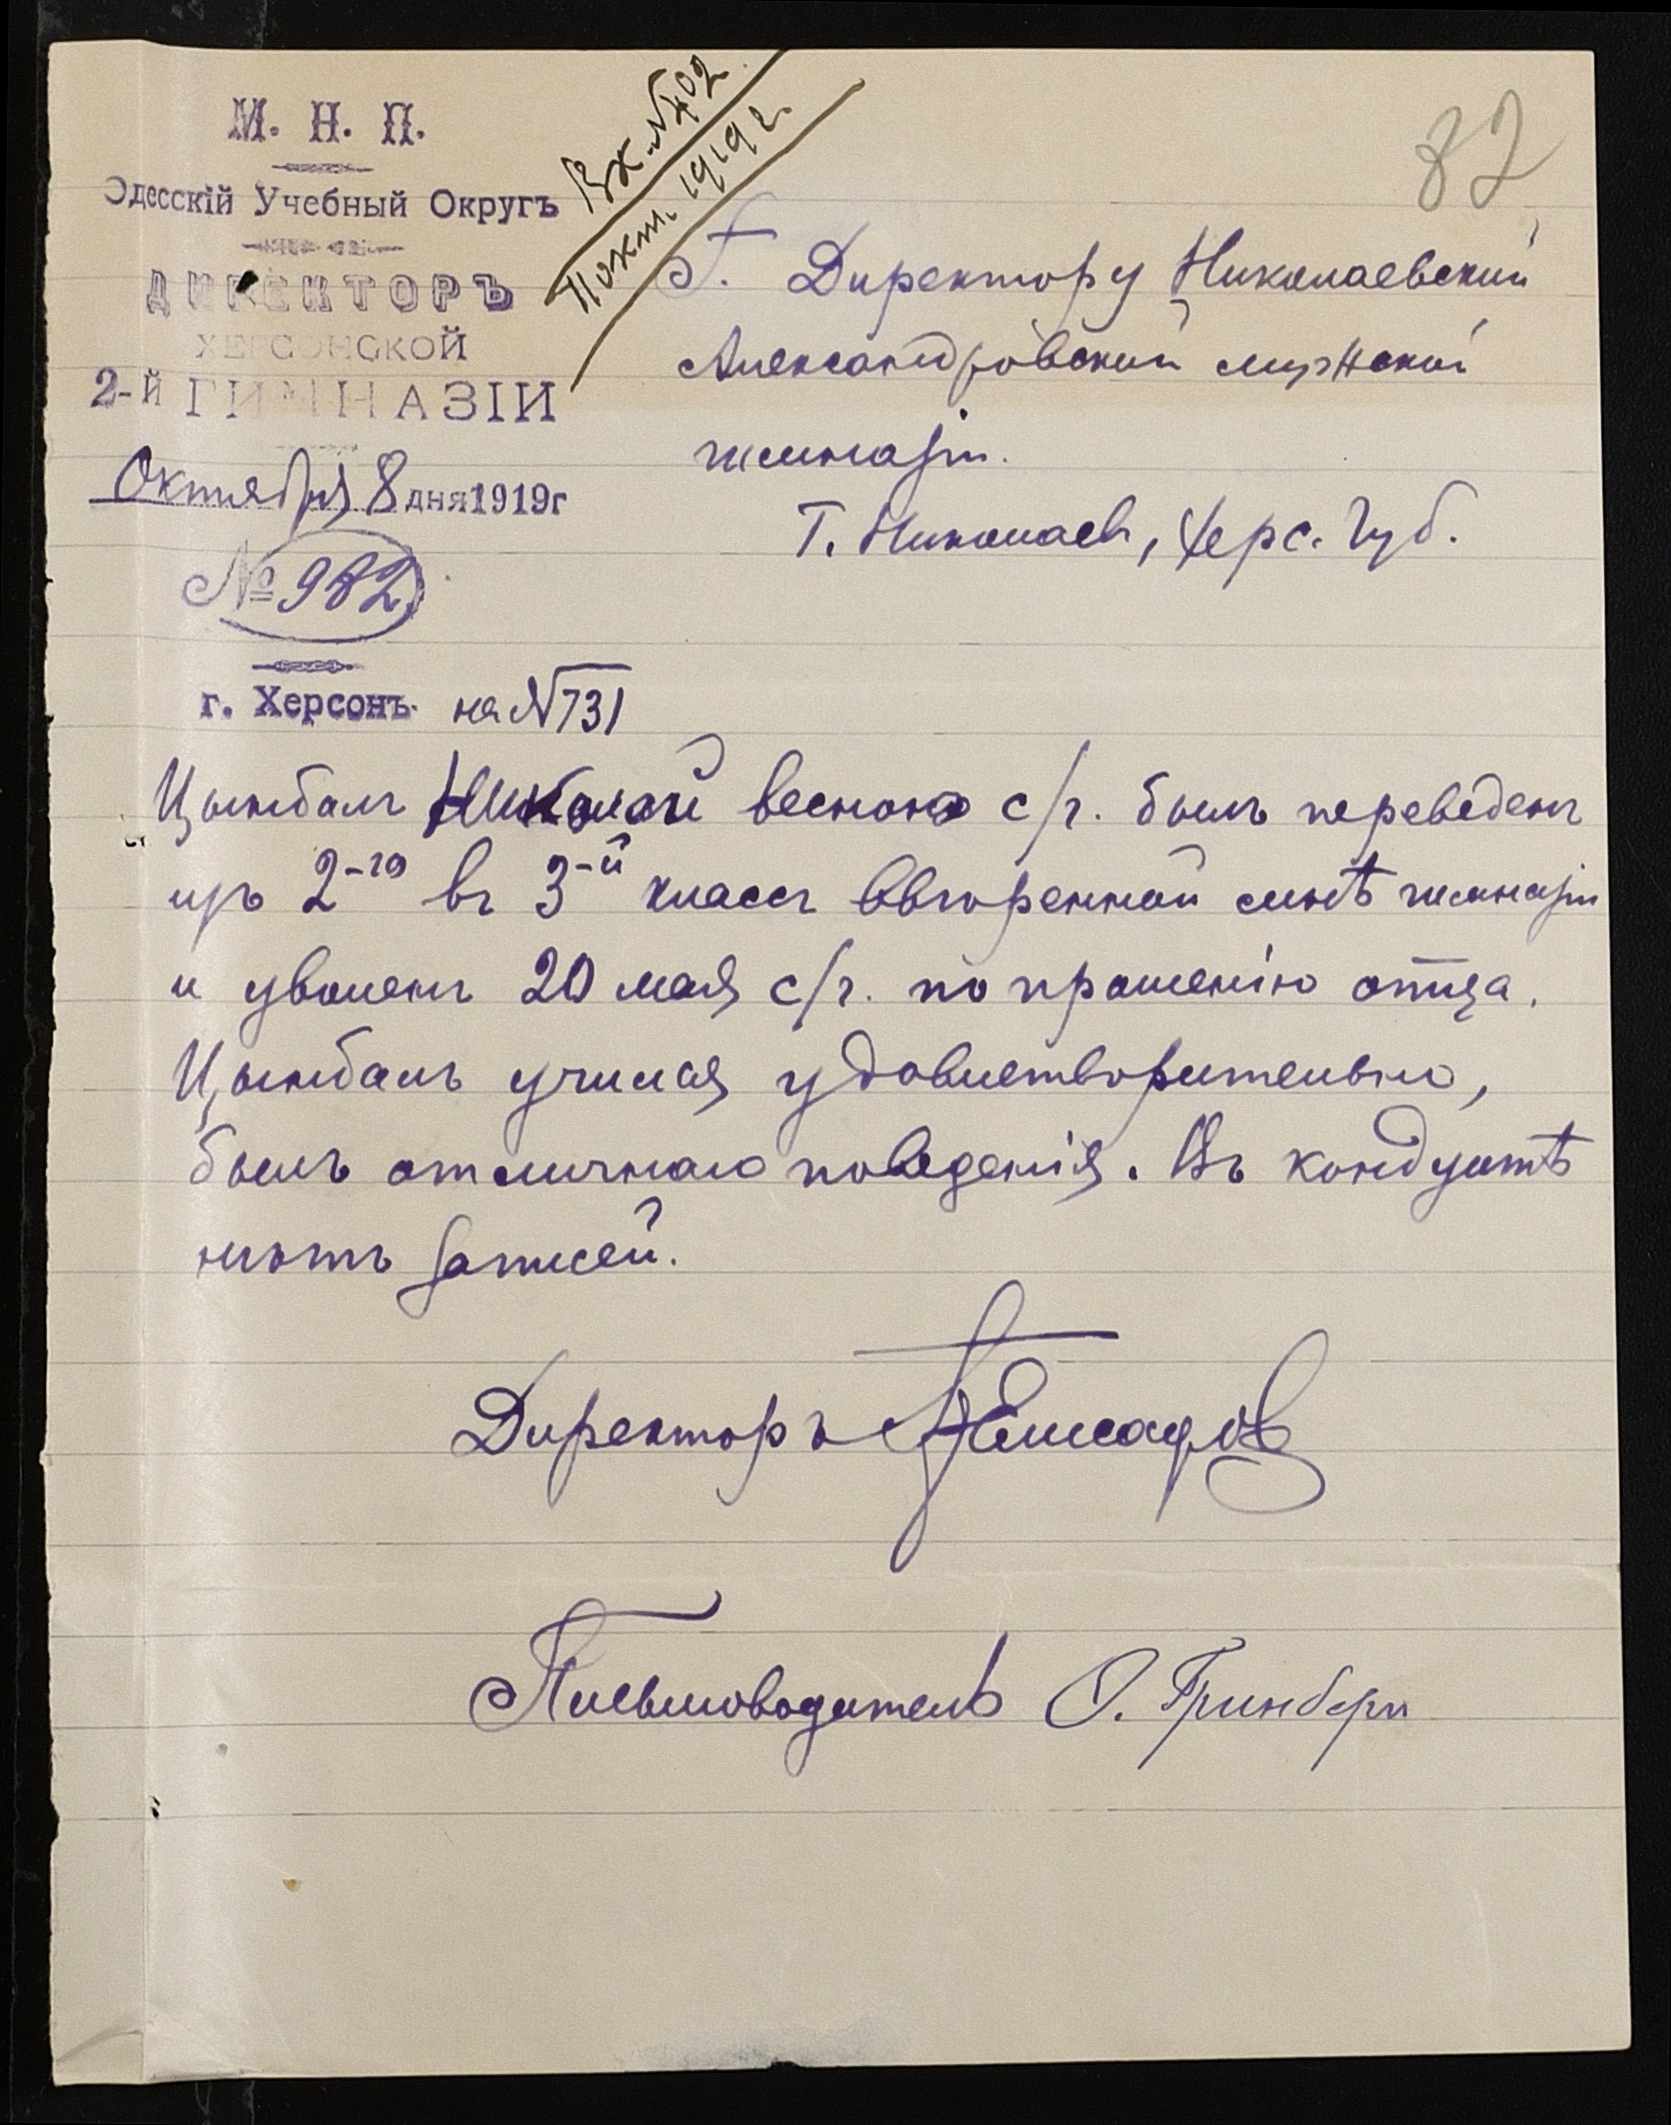 М. Н. П.
Одесскій Учебный Округъ
ДИРЕКТОРЪ
ХЕРСОНСКОЙ
2-й ГИМНАЗІИ
Октября 8 дня 1919 г
№ 982
г. Херсонъ. на № 731
Вх. № 402
окт. 1919 г.
82
Г. Директору Николаевской
Александровской мужской
гимназіи.
Г. Николаевъ, Херс. Губ.
Цымбалъ Николай весною с/г. былъ переведенъ
изъ 2-го въ 3-й классъ ввѣренной мнѣ гимназіи
и уволенъ 20 мая с/г. по прошенію отца.
Цымбалъ учился удовлетворительно,
былъ отличнаго поведенія. Въ кондуитѣ
нѣтъ записей.
Директоръ
Письмоводитель О. Гринберг